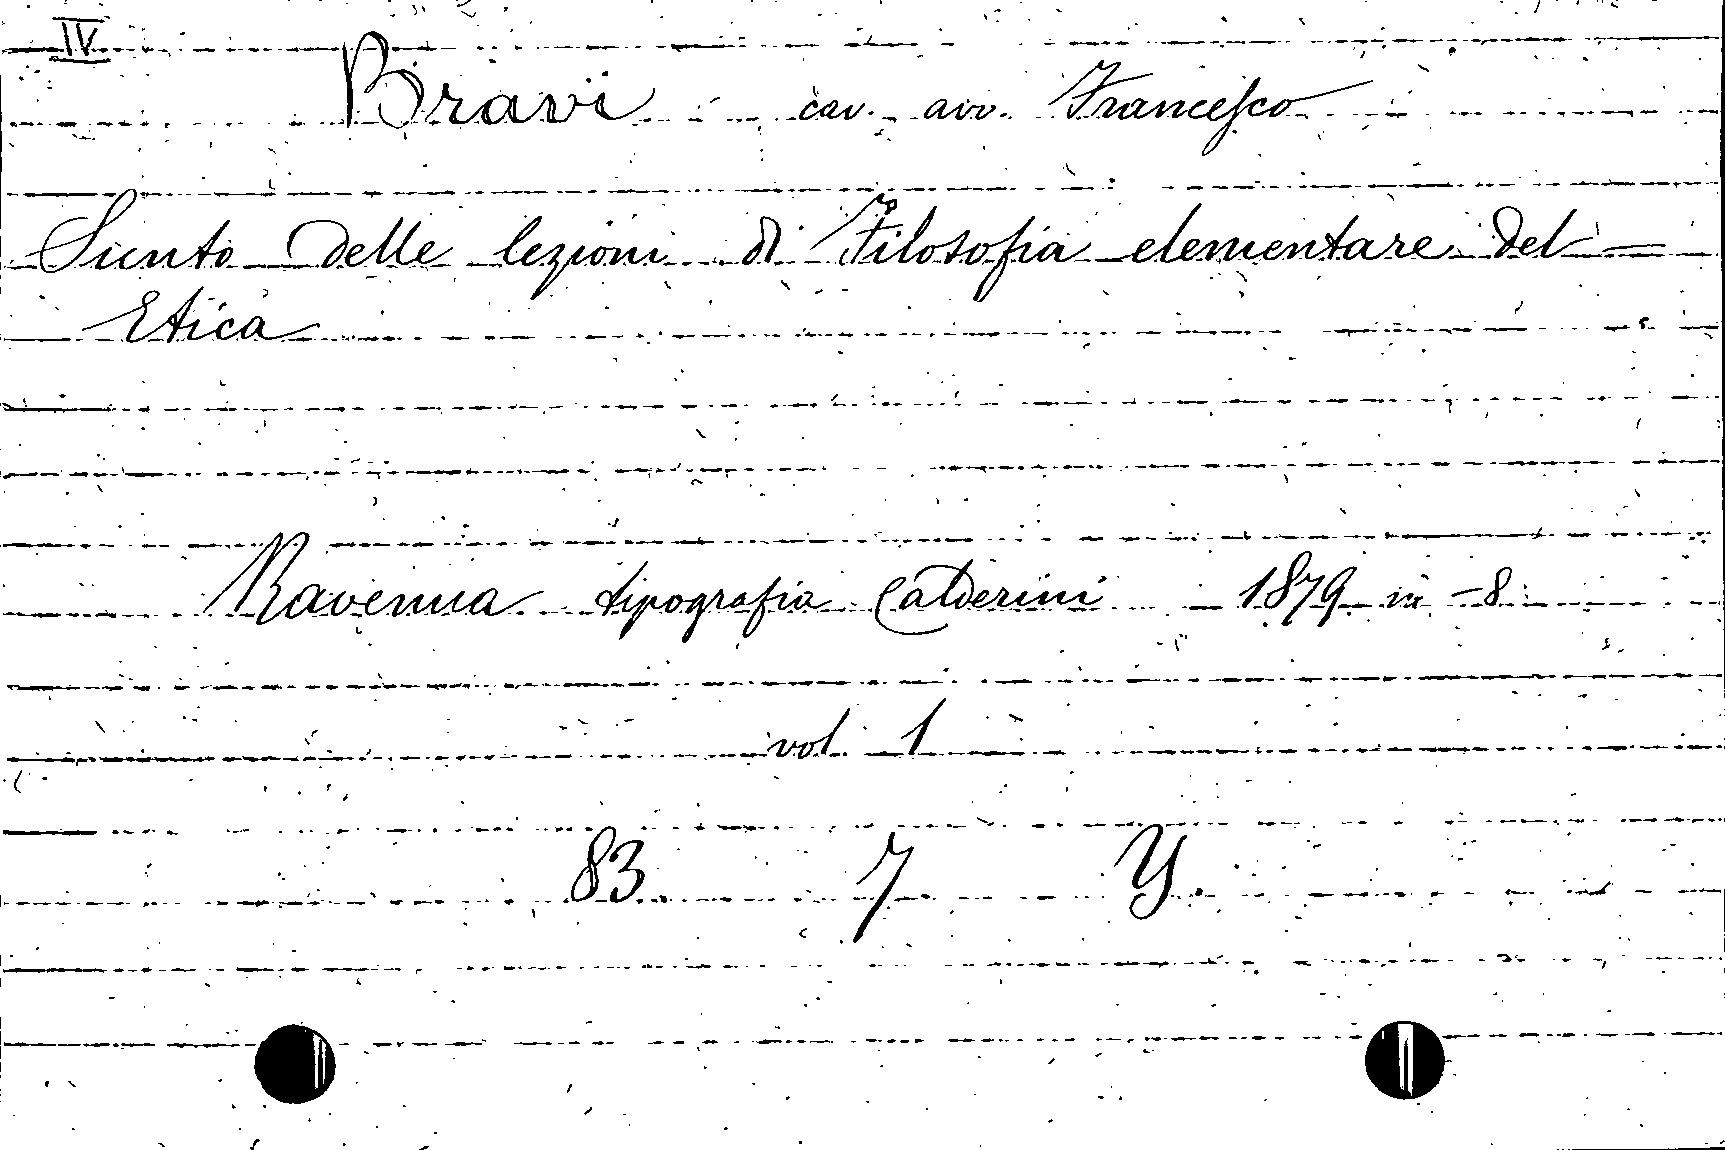 IV
Bravi cav. avv. Francesco
Sunto delle lezioni di Filosofia elementare del=
Etica
Ravenna tipografia Calderini 1879 in -8
vol. 1
83. 7. Y.